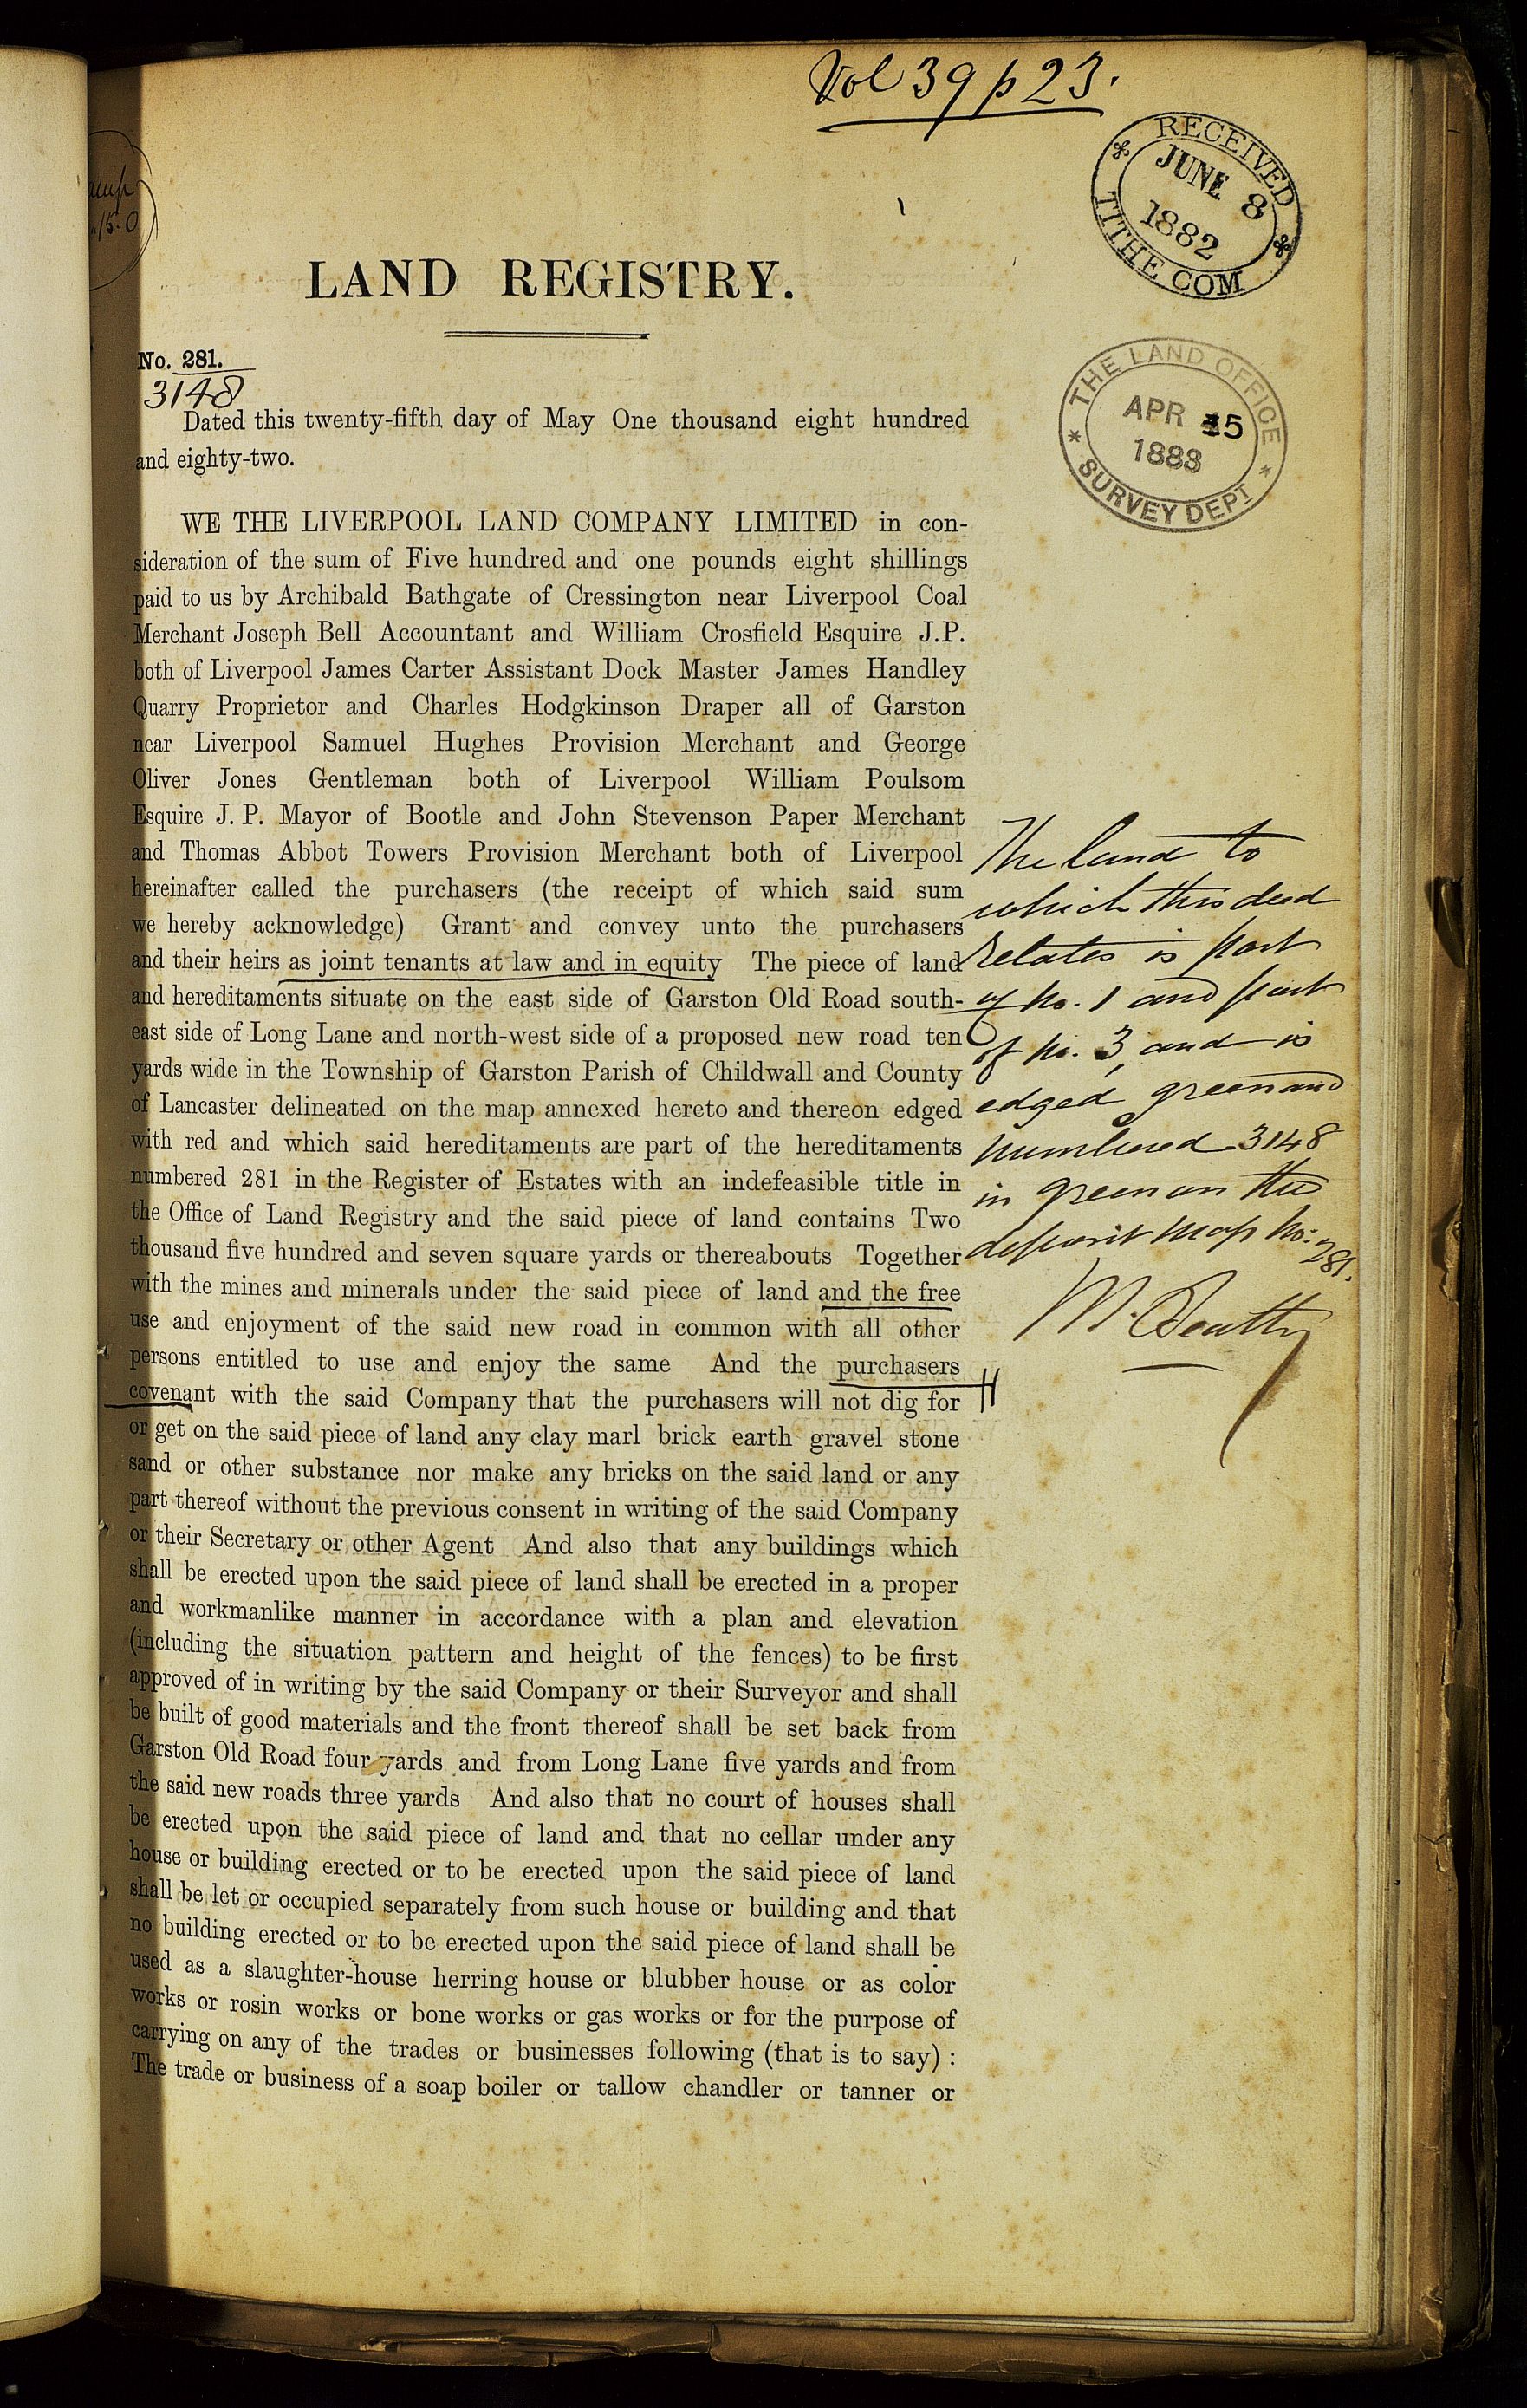 Vol 39 p 23.
RECEIVED
JUNE 8
1882
TITHE COM
15.0
LAND REGISTRY.
THE LAND OFFICE
APR 5
1883
SURVEY DEPT
No. 281.
3148
Dated this twenty-fifth day of May One thousand eight hundred
and eighty-two.
WE THE LIVERPOOL LAND COMPANY LIMITED in con-
sideration of the sum of Five hundred and one pounds eight shillings
paid to us by Archibald Bathgate of Cressington near Liverpool Coal
Merchant Joseph Bell Accountant and William Crosfield Esquire J.P.
both of Liverpool James Carter Assistant Dock Master James Handley
Quarry Proprietor and Charles Hodgkinson Draper all of Garston
near Liverpool Samuel Hughes Provision Merchant and George
Oliver Jones Gentleman both of Liverpool William Poulsom
Esquire J. P. Mayor of Bootle and John Stevenson Paper Merchant
and Thomas Abbot Towers Provision Merchant both of Liverpool
hereinafter called the purchasers (the receipt of which said sum
we hereby acknowledge) Grant and convey unto the purchasers
and their heirs as joint tenants at law and in equity The piece of land
and hereditaments situate on the east side of Garston Old Road south-
east side of Long Lane and north-west side of a proposed new road ten
yards wide in the Township of Garston Parish of Childwall and County
of Lancaster delineated on the map annexed hereto and thereon edged
with red and which said hereditaments are part of the hereditaments
numbered 281 in the Register of Estates with an indefeasible title in
the Office of Land Registry and the said piece of land contains Two
thousand five hundred and seven square yards or thereabouts Together
with the mines and minerals under the said piece of land and the free
use and enjoyment of the said new road in common with all other
persons entitled to use and enjoy the same And the purchasers
covenant with the said Company that the purchasers will not dig for
or get on the said piece of land any clay marl brick earth gravel stone
sand or other substance nor make any bricks on the said land or any
part thereof without the previous consent in writing of the said Company
or their Secretary or other Agent And also that any buildings which
shall be erected upon the said piece of land shall be erected in a proper
and workmanlike manner in accordance with a plan and elevation
(including the situation pattern and height of the fences) to be first
approved of in writing by the said Company or their Surveyor and shall
be built of good materials and the front thereof shall be set back from
Garston Old Road four yards and from Long Lane five yards and from
the said new roads three yards And also that no court of houses shall
be erected upon the said piece of land and that no cellar under any
house or building erected or to be erected upon the said piece of land
shall be let or occupied separately from such house or building and that
no building erected or to be erected upon the said piece of land shall be
used as a slaughter-house herring house or blubber house or as color
works or rosin works or bone works or gas works or for the purpose of
carrying on any of the trades or businesses following (that is to say) :
The trade or business of a soap boiler or tallow chandler or tanner or
The land to
which this deed
relates is part
of no. 1 and part
of no. 3, and is
edged green and
numbered 3148
in green on the
deposit map no: 281.
M. Beatty